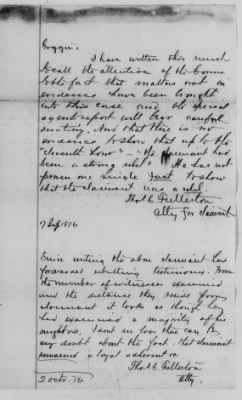 Goggin.
I have written this much
to call the attention of the Comm
to the fact that matters not in
evidence have been brought
into this case and the special
agents report will bear careful
scrutiny. And that there is no
evidence to show that up to the
"Seventh hour" - the claimant had
been a strong rebel" He has not
proven one single fact to show
that the claimant was a rebel.
Thos C. Fullerton
Atty for Claimant
7 1876
Since writing the above claimant has
forwarded rebutting testimony. From
the number of witnesses examined
and the distance they reside from
claimant it looks as though he
had examined a majority of his
neighbors. I cant see how there can be
any doubt about the fact that claimant
remained a loyal adherent &c
Thos C. Fullerton
Atty.
2 Octr. 76